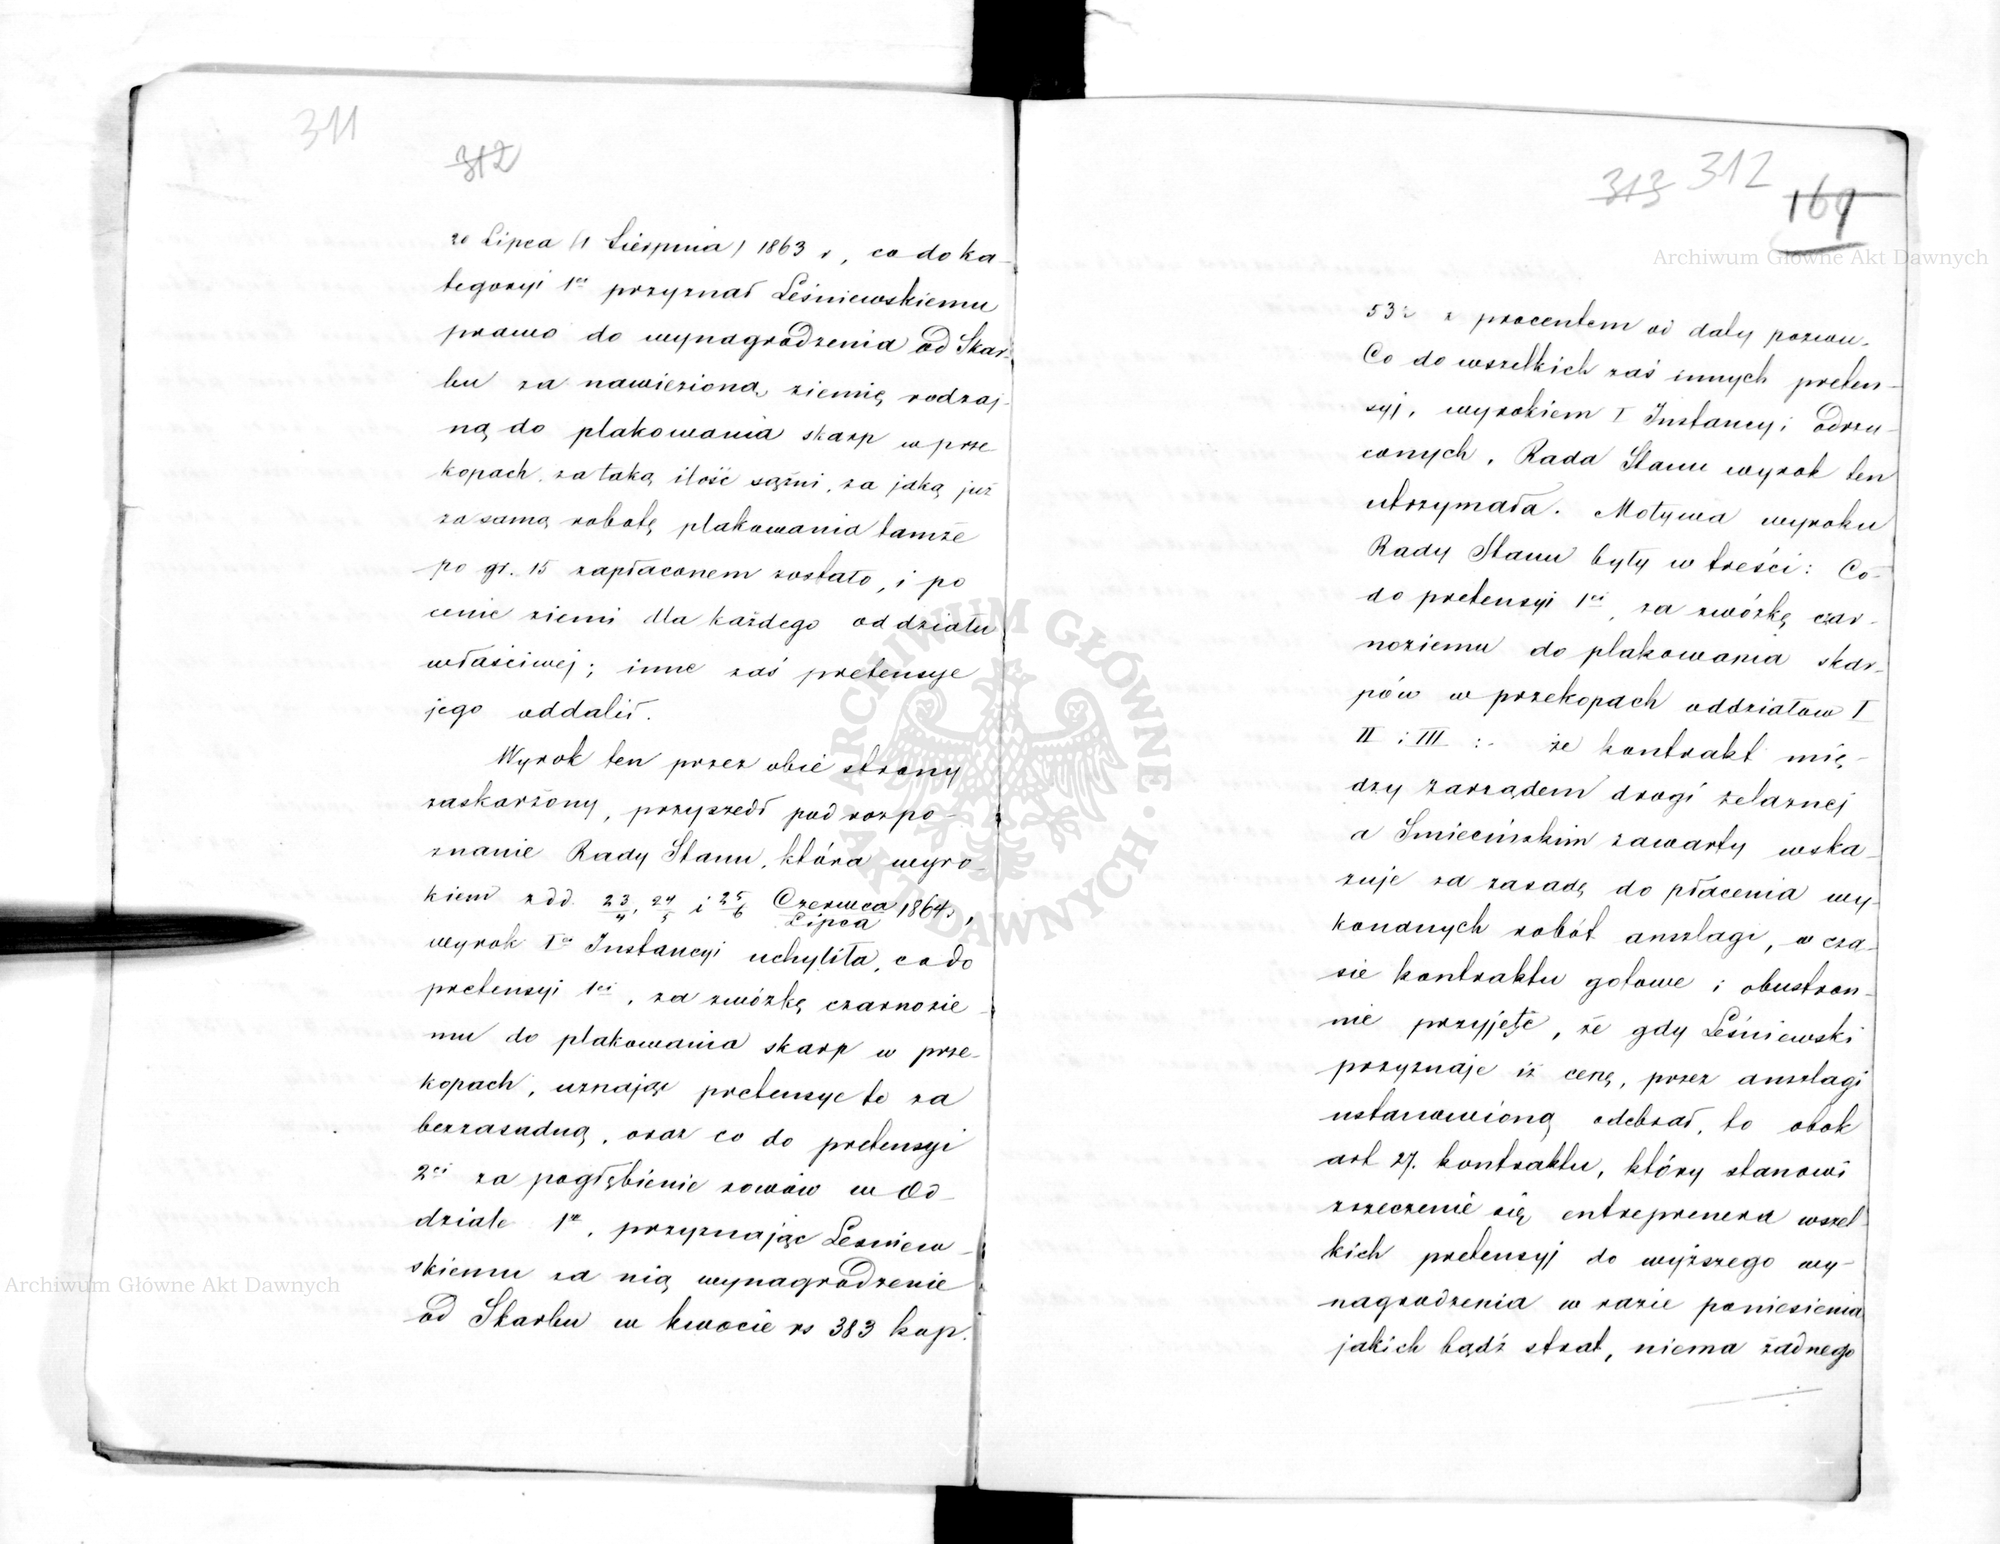 311
312
20 Lipca (1 Sierpnia) 1863 r, co do ka-
tegoryi 1ej przyznał Leśniewskiemu
prawo do wynagrodzenia od Skar-
bu za nawiezioną ziemię rodzaj-
ną do plakowania skarp w prze
kopach, za taką ilość sążni, za jaką już
za samą robotę plakowania tamże
po gr. 15 zapłaconem zostało, i po
cenie ziemi dla każdego oddziału
właściwej; inne zaś pretensye
jego oddalił.
Wyrok ten przez obie strony
zaskarżony, przyszedł pod rozpo-
znanie Rady Stanu, która wyro-
kiem z dd. 23/4, 24/5 i 25/6 Czerwca/Lipca 1864 r,
wyrok Iej Instancyi uchyliła, co do
pretensyi 1ej, za zwózkę czarnozie-
mu do plakowania skarp w prze-
kopach, uznając pretensye te za
bezzasadną, oraz co do pretensyi
2ej za pogłębienie rowów w Od-
dziale 1m, przyznając Leśniew-
skiemu za nią wynagrodzenie
od Skarbu w kwocie rs 383 kop.
313 312
169
53½ z procentem od daty pozwu.
Co do wszelkich zaś innych preten-
syj, wyrokiem I Instancyi odrzu-
conych, Rada Stanu wyrok ten
utrzymała. Motywa wyroku
Rady Stanu były w treści: Co-
do pretensyi 1ej, za zwózkę czar-
noziemu do plakowania skar-
pów w przekopach oddziałow I
II i III :- że kontrakt mię-
dzy zarządem drogi żelaznej
a Śmiecińskim zawarty wska-
zuje za zasadę do płacenia wy-
konanych robót anszlagi, w cza-
sie kontraktu gotowe i obustron-
nie przyjęte, że gdy Leśniewski
przyznaje iż cenę, przez anszlagi
ustanowioną odebrał, to obok
art 27. kontraktu, który stanowi
zrzeczenie się entreprenera wszel-
kich pretensyj do wyższego wy-
nagrodzenia w razie poniesienia
jakich bądź strat, niema żadnego
Archiwum Główne Akt Dawnych
Archiwum Główne Akt Dawnych
ARCHIWUM GŁÓWNE AKT DAWNYCH